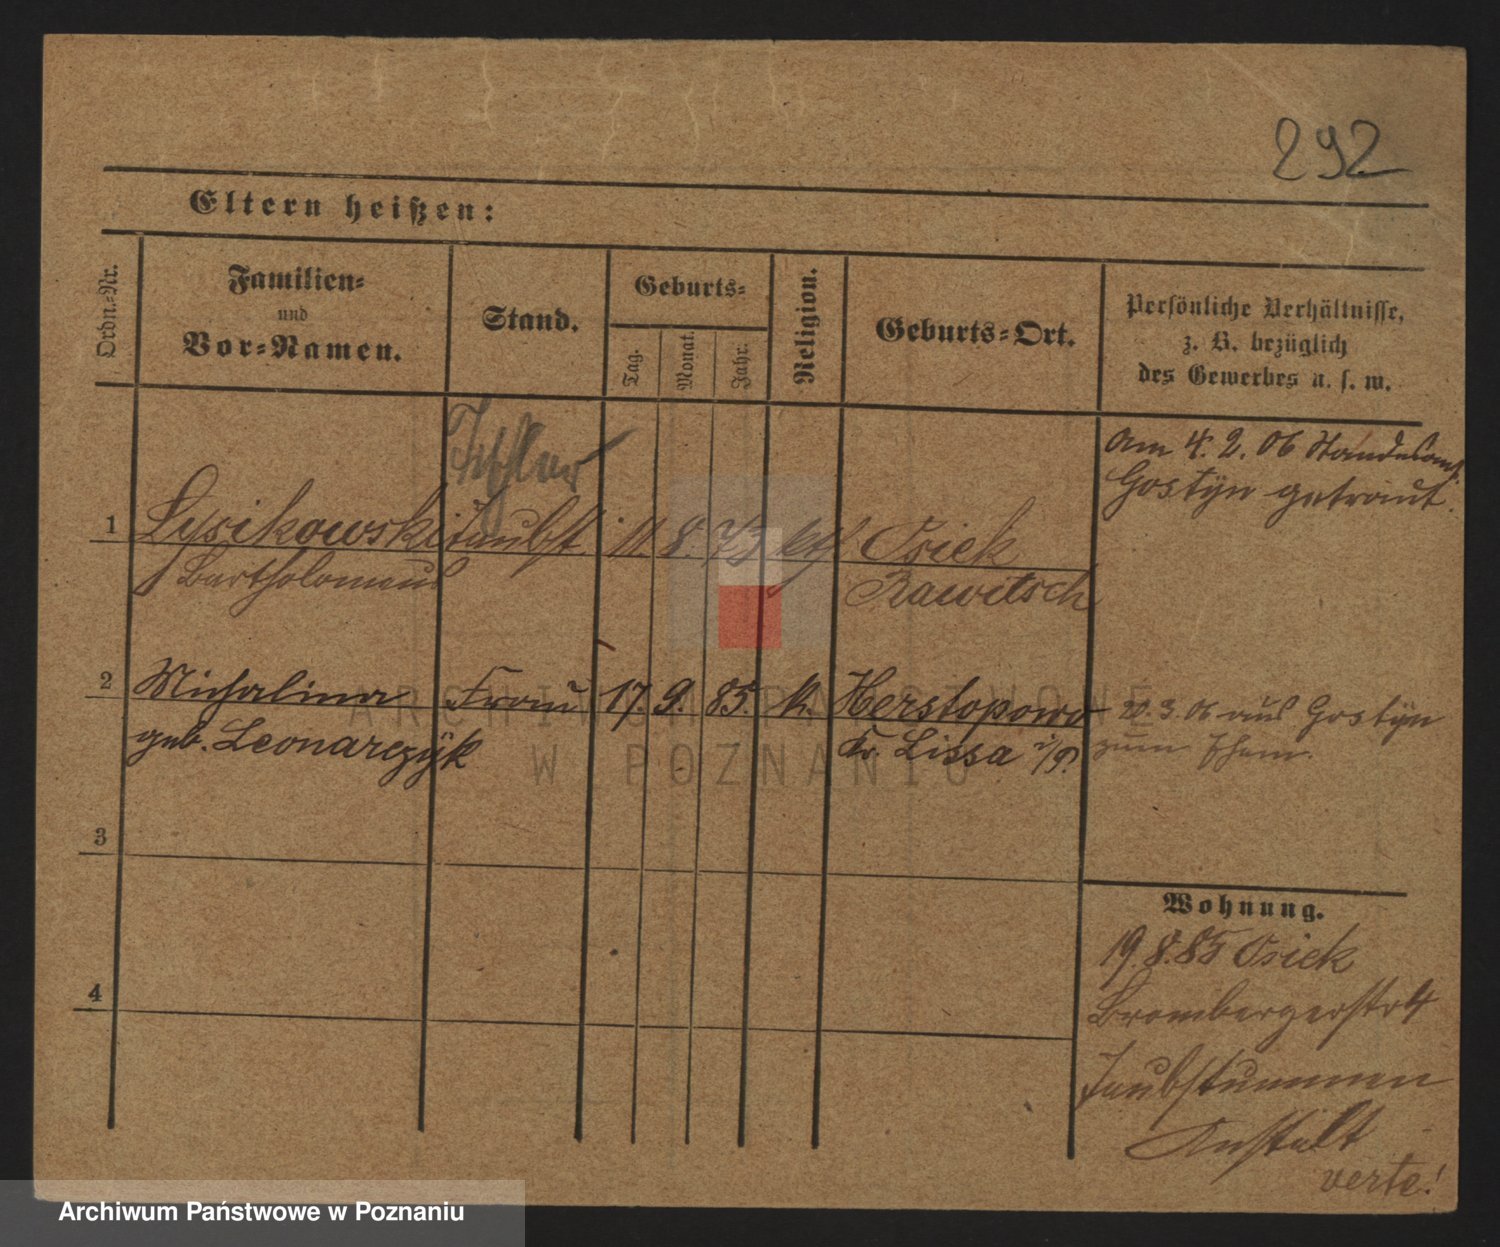 292
Eltern heißen:
Ordn.-Nr.
Familien-
und
Vor-Namen.
Stand.
Geburts-
Tag.
Monat.
Jahr.
Religion.
Geburts-Ort.
Persönliche Verhältnisse,
z. B. bezüglich
des Gewerbes u. s. w.
Am 4. 2. 06 Standesamt
Gostyn getraut.
Tischler
1 Lysikowski taubst. 11. 8. 73 kth Osiek
Bartholomeus Rawitsch
2 Michalina Frau 17. 9. 85. k. Herstopowo 20. 3. 06 aus Gostyn
geb. Leonarczyk Kr. Lissa i/P. zum Ehem.
3
Wohnung.
19. 8. 85 Osiek
4
Brombergerstr 4
Taubstummen
Anstalt
verte!
ARCHIWUM PAŃSTWOWE
W POZNANIU
Archiwum Państwowe w Poznaniu